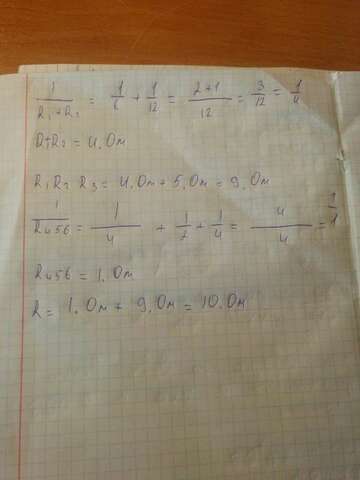 1/R₁+R₂ = 1/6 + 1/12 = 2+1/12 = 3/12 = 1/4
R₁R₂ = 4.Ом
R₁ R₂ R₃ = 4.Ом + 5.Ом = 9.Ом
1/R456 = 1/4 + 1/2 + 1/4 = 4/4 = 1/1
R456 = 1.Ом
R = 1.Ом + 9.Ом = 10.Ом